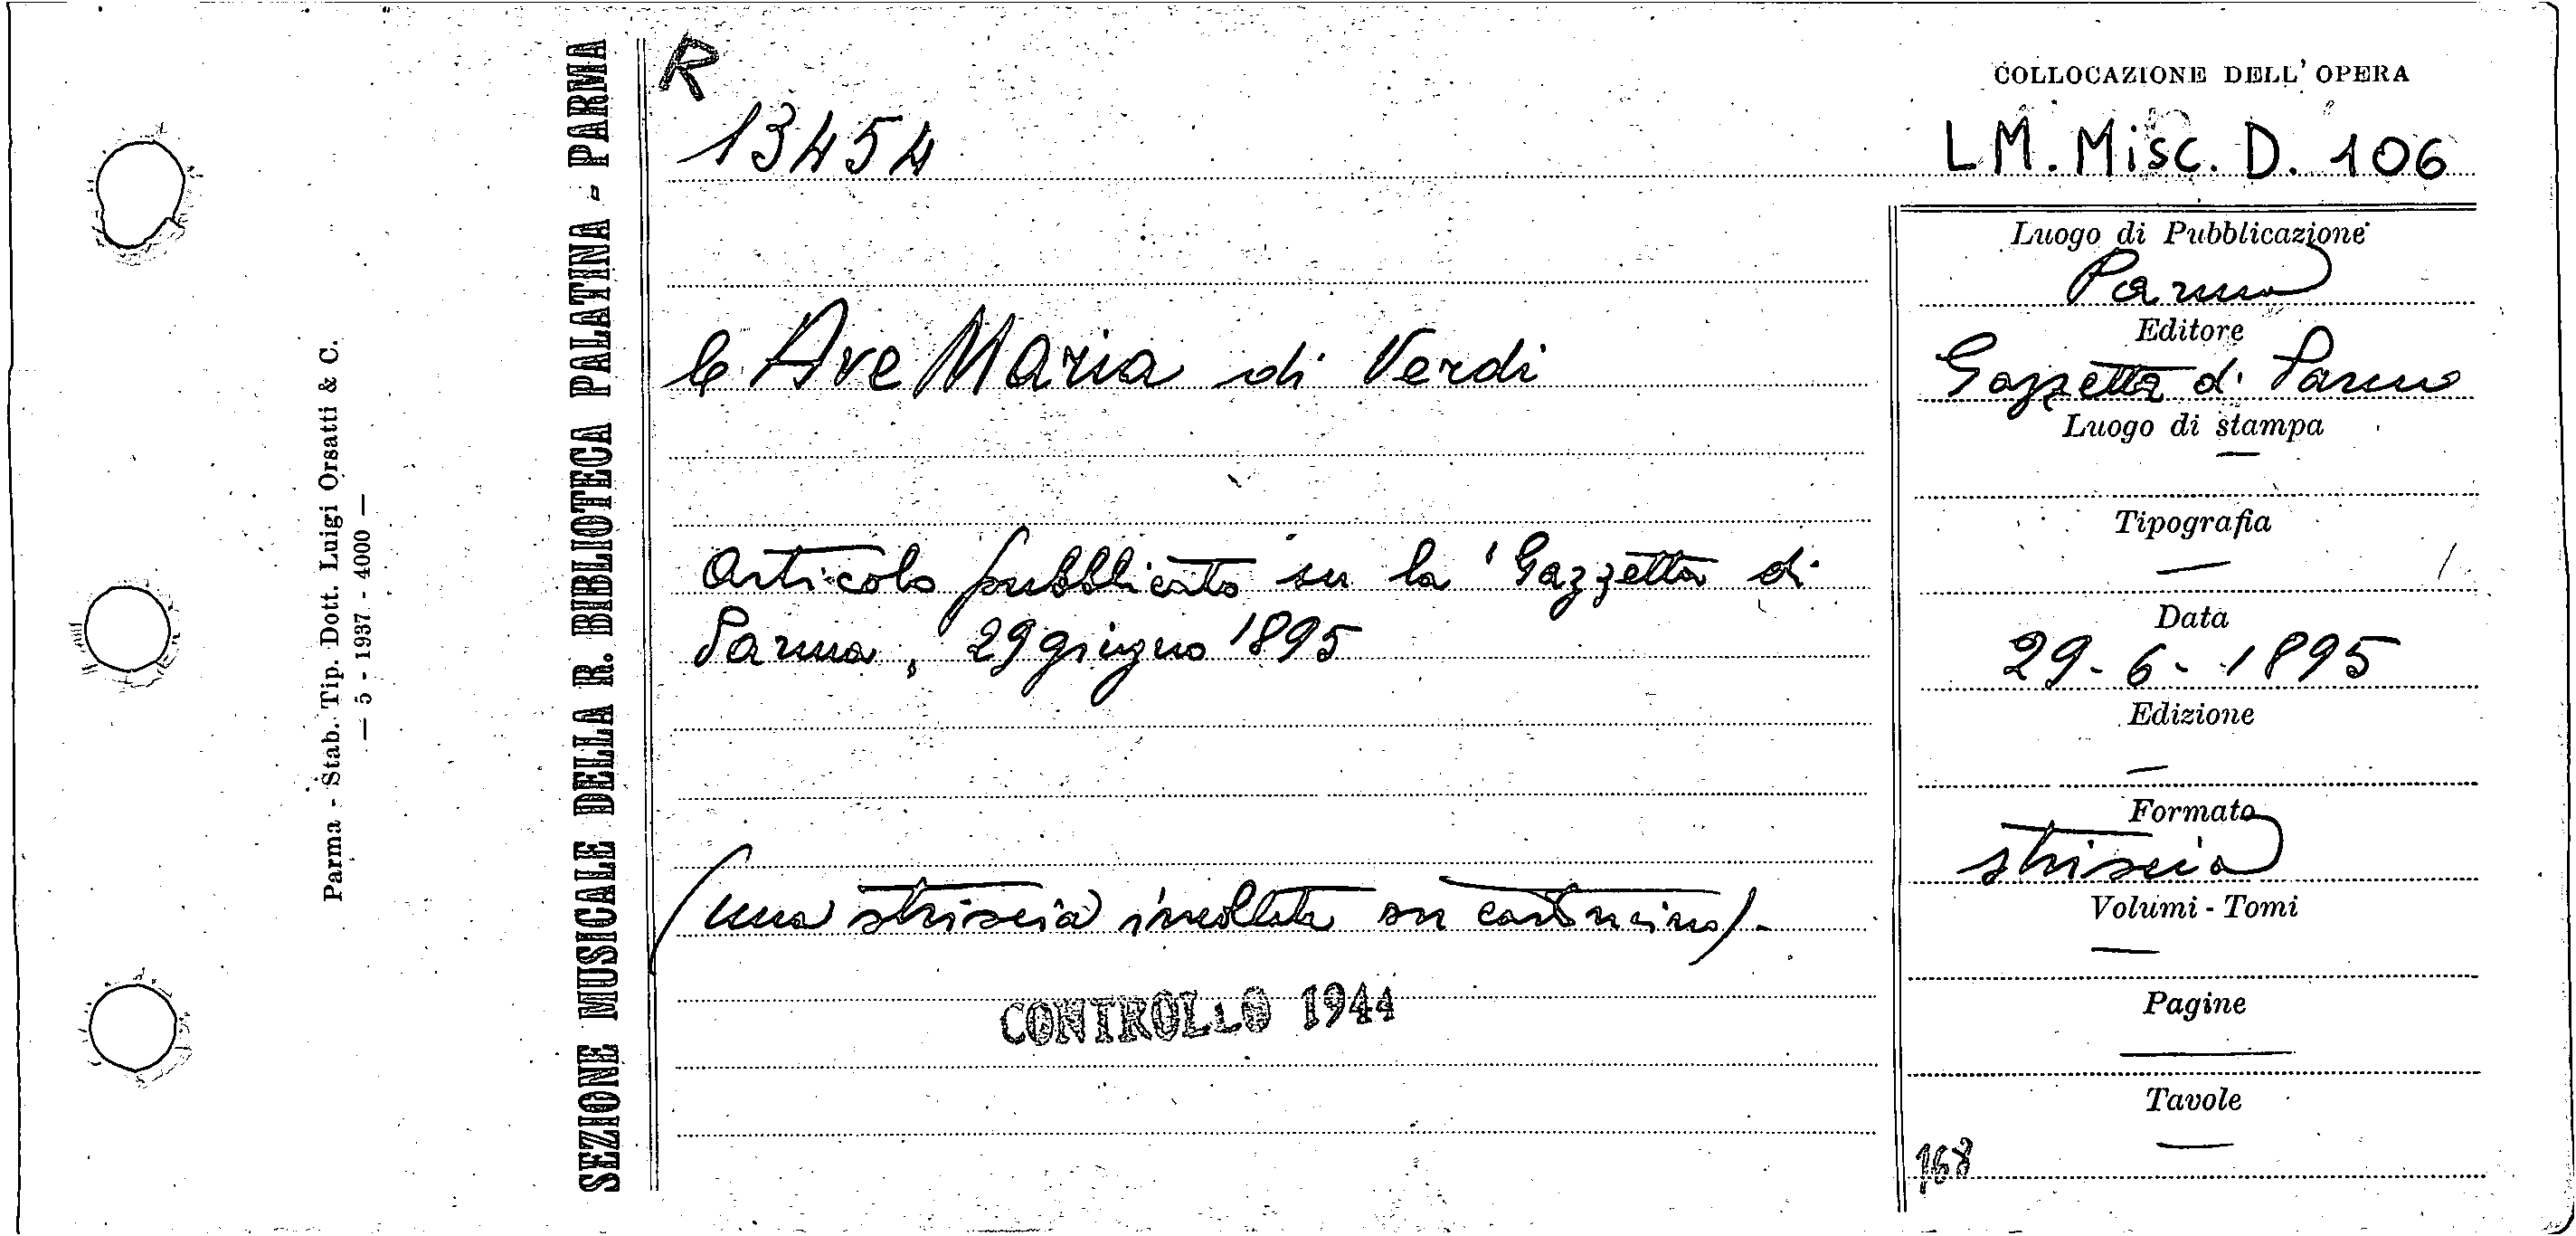 Parma - Stab. Tip. Dott. Luigi Orsatti & C.
— 5 - 1937 - 4000 —
SEZIONE MUSICALE DELLA R. BIBLIOTECA PALATINA - PARMA
R
13454
COLLOCAZIONE DELL'OPERA
LM. Misc. D. 106
le Ave Maria di Verdi
Articolo pubblicato su la "Gazzetta di
Parma, 29 giugno 1895
(una striscia incollata su cartoncino).-
CONTROLLO 1944
Luogo di Pubblicazione
Parma
Editore
Gazzetta di Parma
Luogo di stampa
—
Tipografia
—
Data
29-6-1895
Edizione
—
Formato
striscia
Volumi - Tomi
—
Pagine
—
Tavole
—
168